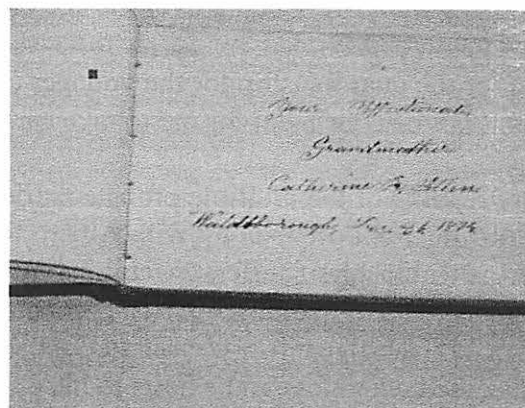 Your Affectionate
Grandmother
Catherine
Waldoborough, Dec. 1874